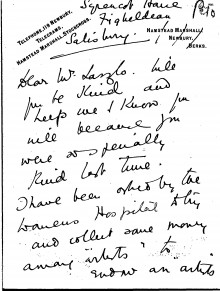 Syrencot House
Figheldean
Salisbury.
PTO
TELEPHONE, 113 NEWBURY.
TELEGRAMS,
HAMSTEAD MARSHALL, STICHCROSS.
HAMSTEAD MARSHALL,
NEWBURY,
BERKS.
Dear Mr. Laszlo. Will
you be kind and
help me I know you
will because you
were so specially
kind last time.
I have been asked by the
Womens Hospital to try
and collect some money
among "artists" to
endow an artists